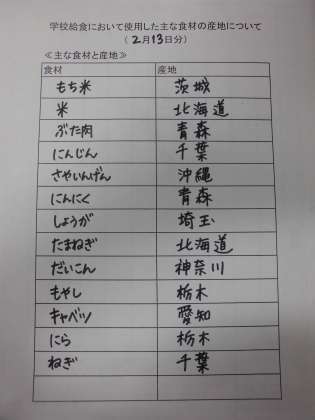 学校給食において使用した主な食材の産地について
(2月13日分)
≪主な食材と産地≫
食材 産地
もち米 茨城
米 北海道
ぶた肉 青森
にんじん 千葉
さやいんげん 沖縄
にんにく 青森
しょうが 埼玉
たまねぎ 北海道
だいこん 神奈川
もやし 栃木
キャベツ 愛知
にら 栃木
ねぎ 千葉